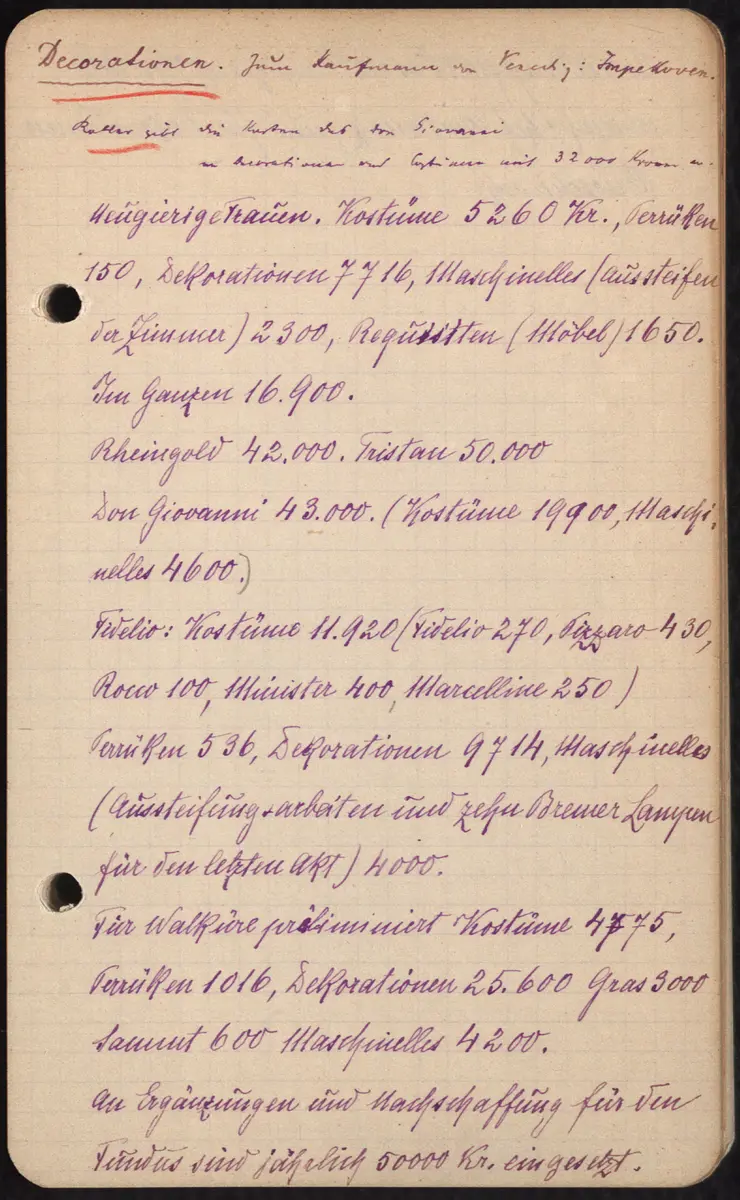 Decorationen. Zum Kaufmann von Venedig: Impekoven.
Roller gibt die Kosten des Don Giovanni
an Decorationen und Costümen mit 32000 Kronen an.
Neugierige Frauen. Kostüme 5260 Kr., Perrüken
150, Dekorationen 7716, Maschinelles (Aussteifen
der Zimmer) 2300, Requisiten (Möbel) 1650.
Im Ganzen 16.900.
Rheingold 42.000. Tristan 50.000
Don Giovanni 43.000. (Kostüme 19900, Maschi-
nelles 4600.)
Fidelio: Kostüme 11.920 (Fidelio 270, Pizzaro 430,
Rocco 100, Minister 400, Marcelline 250)
Perrüken 536, Dekorationen 9714, Maschinelles
(Aussteifungsarbeiten und zehn Bremer Lampen
für den letzten Akt) 4000.
Für Walküre präliminiert Kostüme 4775,
Perrüken 1016, Dekorationen 25.600 Gras 3000
Sammt 600 Maschinelles 4200.
An Ergänzungen und Nachschaffung für den
Fundus sind jährlich 50000 Kr. eingesetzt.